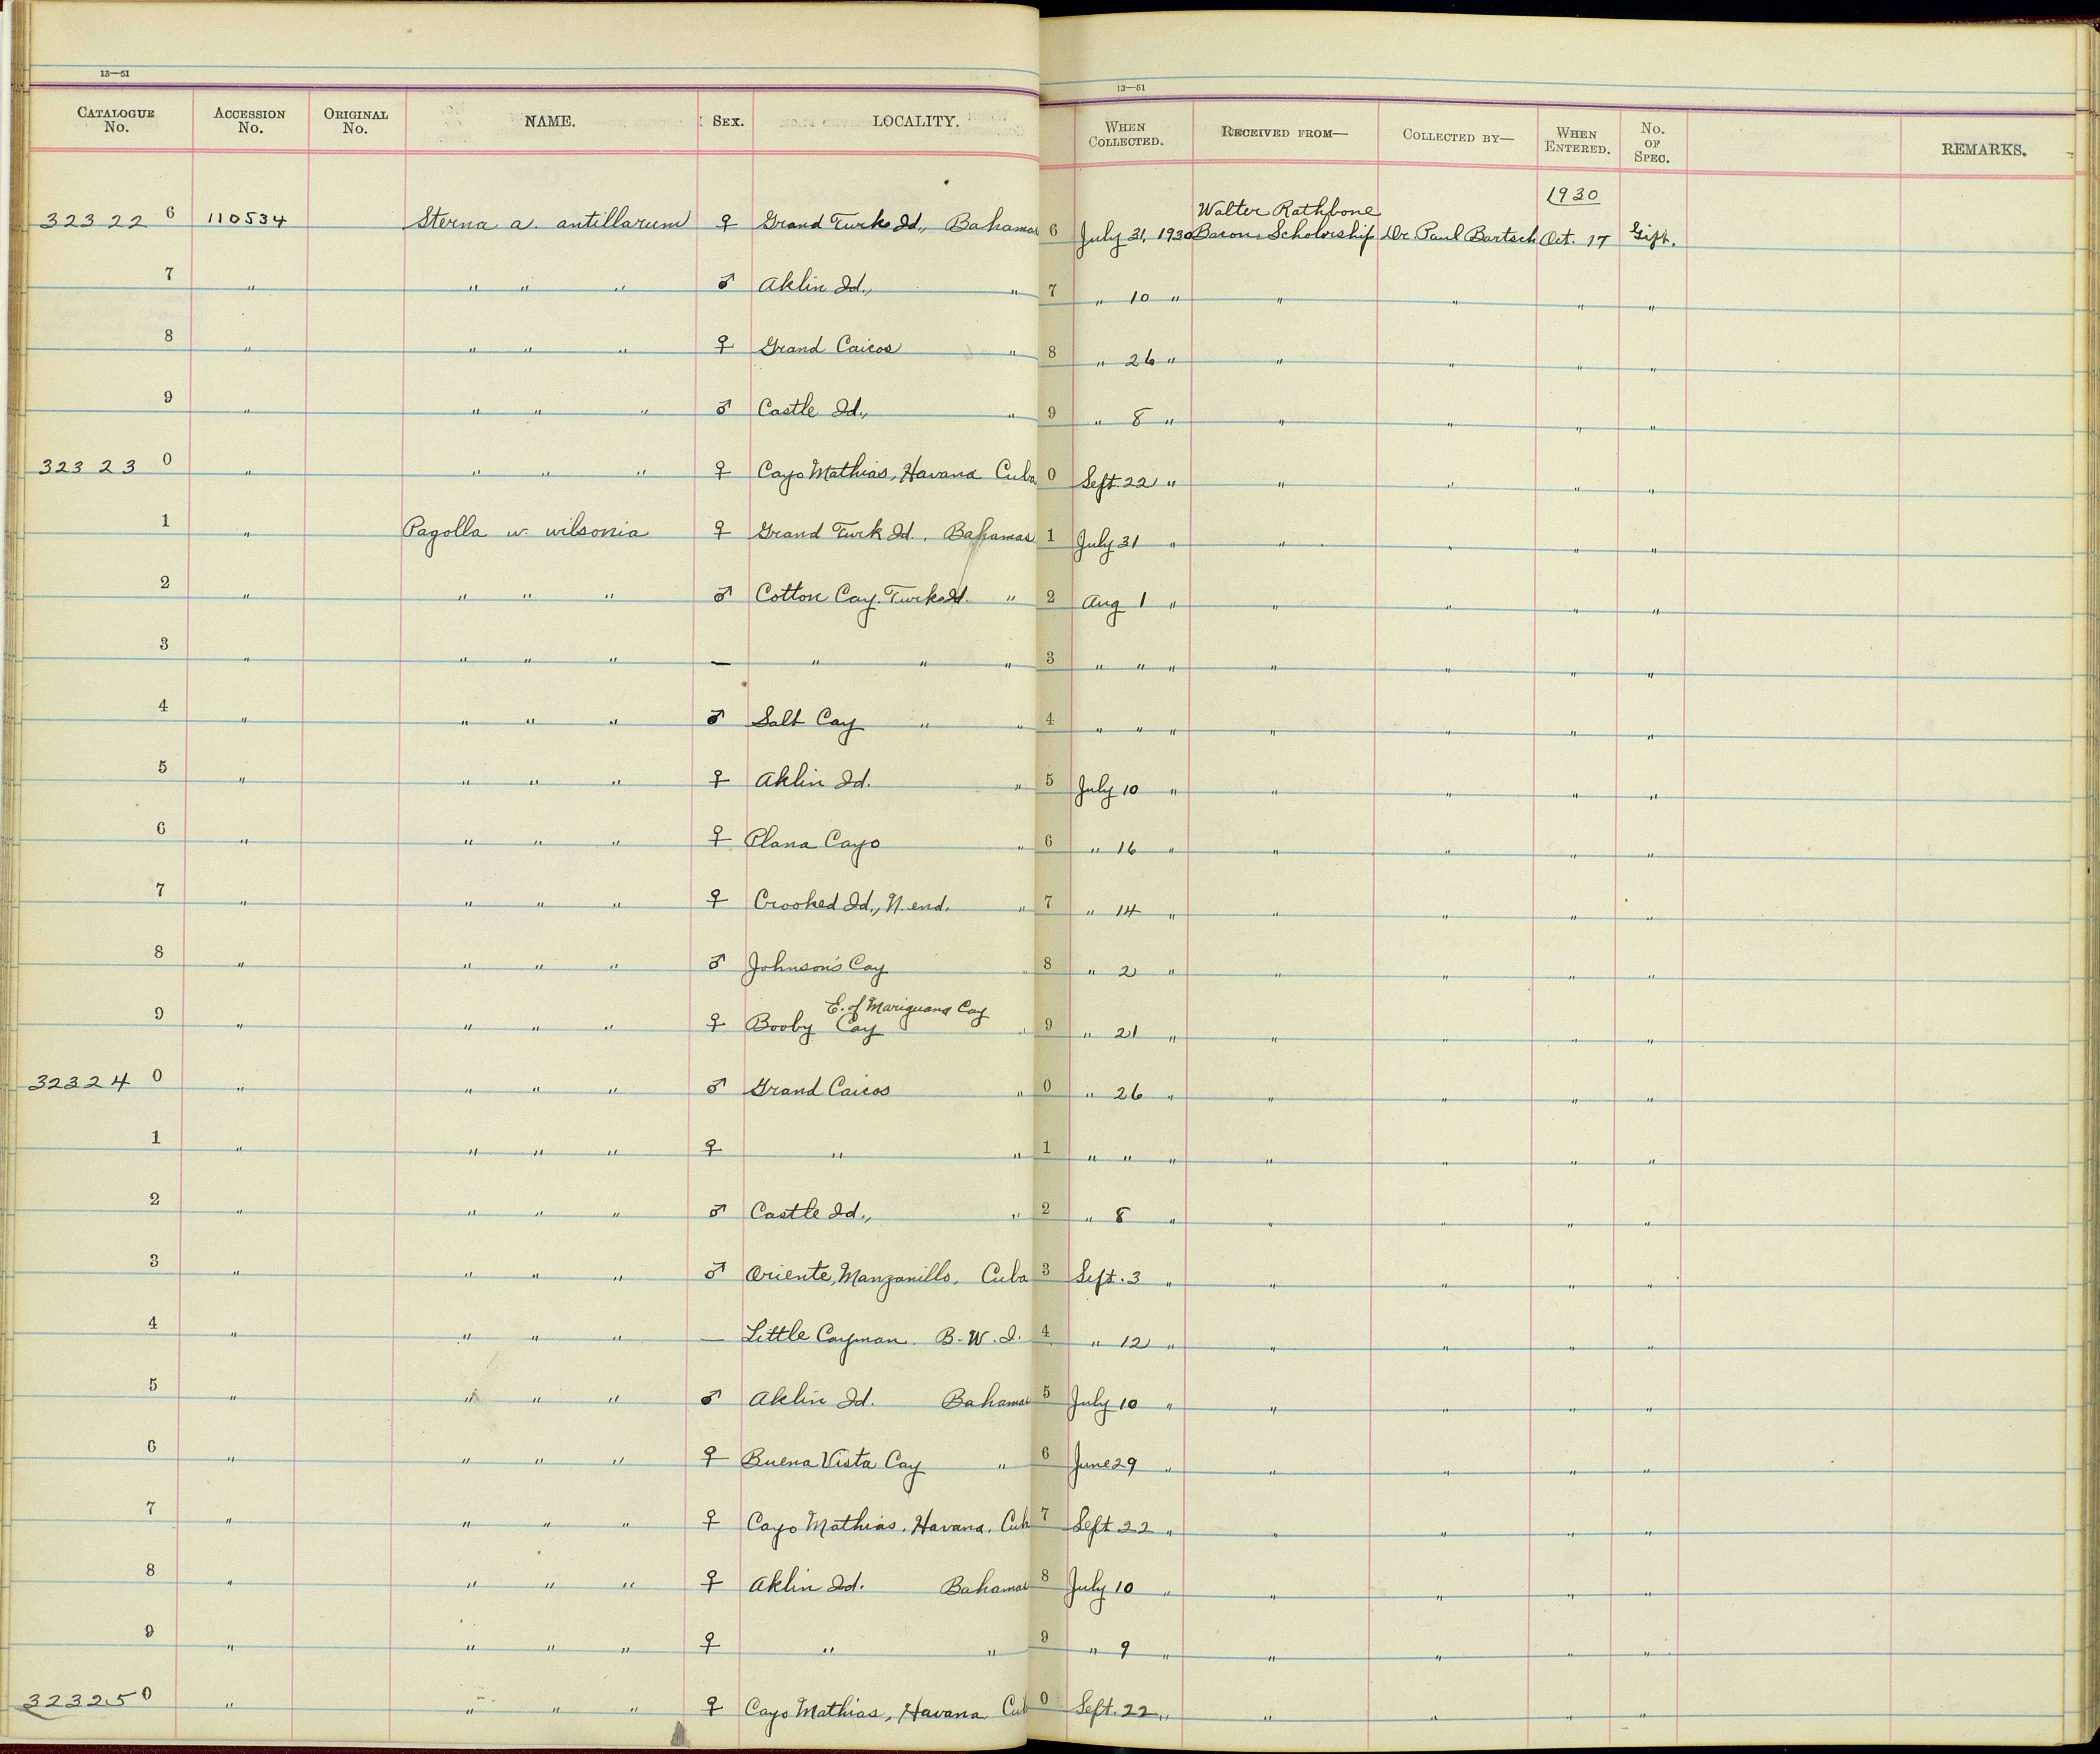 13—51
13—51
CATALOGUE No. ACCESSION No. ORIGINAL No. NAME. SEX. LOCALITY. WHEN COLLECTED. RECEIVED FROM— COLLECTED BY— WHEN ENTERED. No. OF SPEC. REMARKS.
1930
Walter Rathbone
32322 6 110534 Sterna a. antillarum ♀ Grand Turk Id., Bahamas 6 July 31, 1930 Bacon Scholorship Dr. Paul Bartsch Oct. 17 Gift.
7 " " " " ♂ Aklin Id., " 7 " 10 " " " " "
8 " " " " ♀ Grand Caicos " 8 " 26 " " " " "
9 " " " " ♂ Castle Id., " 9 " 8 " " " " "
32323 0 " " " " ♀ Cayo Mathias, Havana Cuba 0 Sept. 22 " " " " "
1 " Pagolla w. wilsonia ♀ Grand Turk Id., Bahamas 1 July 31 " " " " "
2 " " " " ♂ Cotton Cay. Turks Id. " 2 Aug 1 " " " " "
3 " " " " — " " " 3 " " " " " " "
4 " " " " ♂ Salt Cay " " 4 " " " " " " "
5 " " " " ♀ Aklin Id. " 5 July 10 " " " " "
6 " " " " ♀ Plana Cayo " 6 " 16 " " " " "
7 " " " " ♀ Crooked Id., N. end. " 7 " 14 " " " " "
8 " " " " ♂ Johnson's Cay " 8 " 2 " " " " "
E. of Mariguana Cay
9 " " " " ♀ Booby Cay " 9 " 21 " " " " "
32324 0 " " " " ♂ Grand Caicos " 0 " 26 " " " " "
1 " " " " ♀ " " 1 " " " " " " "
2 " " " " ♂ Castle Id., " 2 " 8 " " " " "
3 " " " " ♂ Oriente, Manzanillo, Cuba 3 Sept. 3 " " " " "
4 " " " " — Little Cayman. B. W. I. 4 " 12 " " " " "
5 " " " " ♂ Aklin Id. Bahamas 5 July 10 " " " " "
6 " " " " ♀ Buena Vista Cay " 6 June 29 " " " " "
7 " " " " ♀ Cayo Mathias, Havana, Cub 7 Sept. 22 " " " " "
8 " " " " ♀ Aklin Id. Bahamas 8 July 10 " " " " "
9 " " " " ♀ " " 9 " 9 " " " " "
32325 0 " " " " ♀ Cayo Mathias, Havana Cub 0 Sept. 22 " " " " "